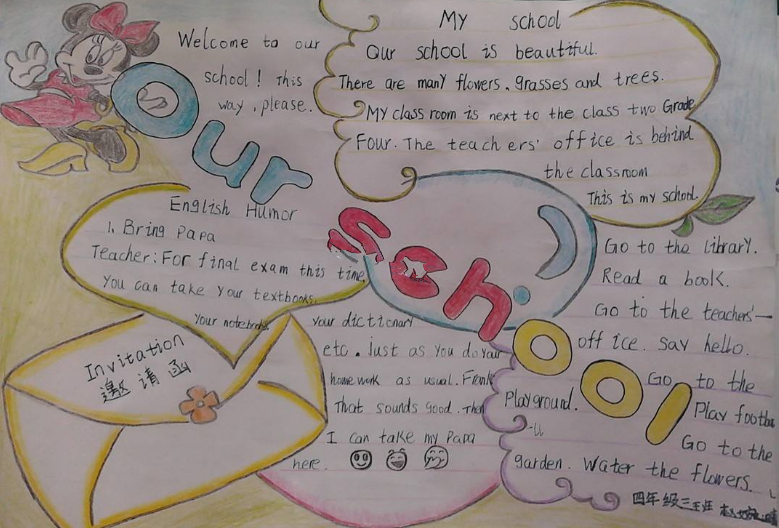 Welcome to our
school! This
way, please.
Our school
My school
Our school is beautiful.
There are many flowers, grasses and trees.
My class room is next to the class two Grade
Four. The teachers' office is behind
the classroom
This is my school.
English Humor
1. Bring Papa
Teacher: For final exam this time,
you can take your textbooks,
your notebooks
your dictionary
etc. just as you do your
home work as usual. Frank
That sounds good. Then
I can take my Papa
here.
Invitation
邀请函
Go to the library.
Read a book.
Go to the teachers'
office. say hello.
Go to the
Playground.
Play footba
Go to the
garden. Water the flowers.
四年级三班